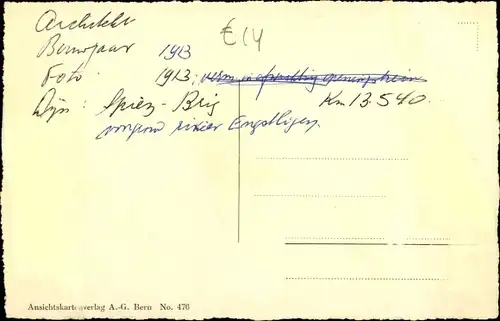 Architekt
€14
Bouwjaar 1913
Foto: 1913;
Lijn: Spiez-Brig Km 13.540.
rivier Engstligen.
Ansichtskartenverlag A.-G. Bern No. 476